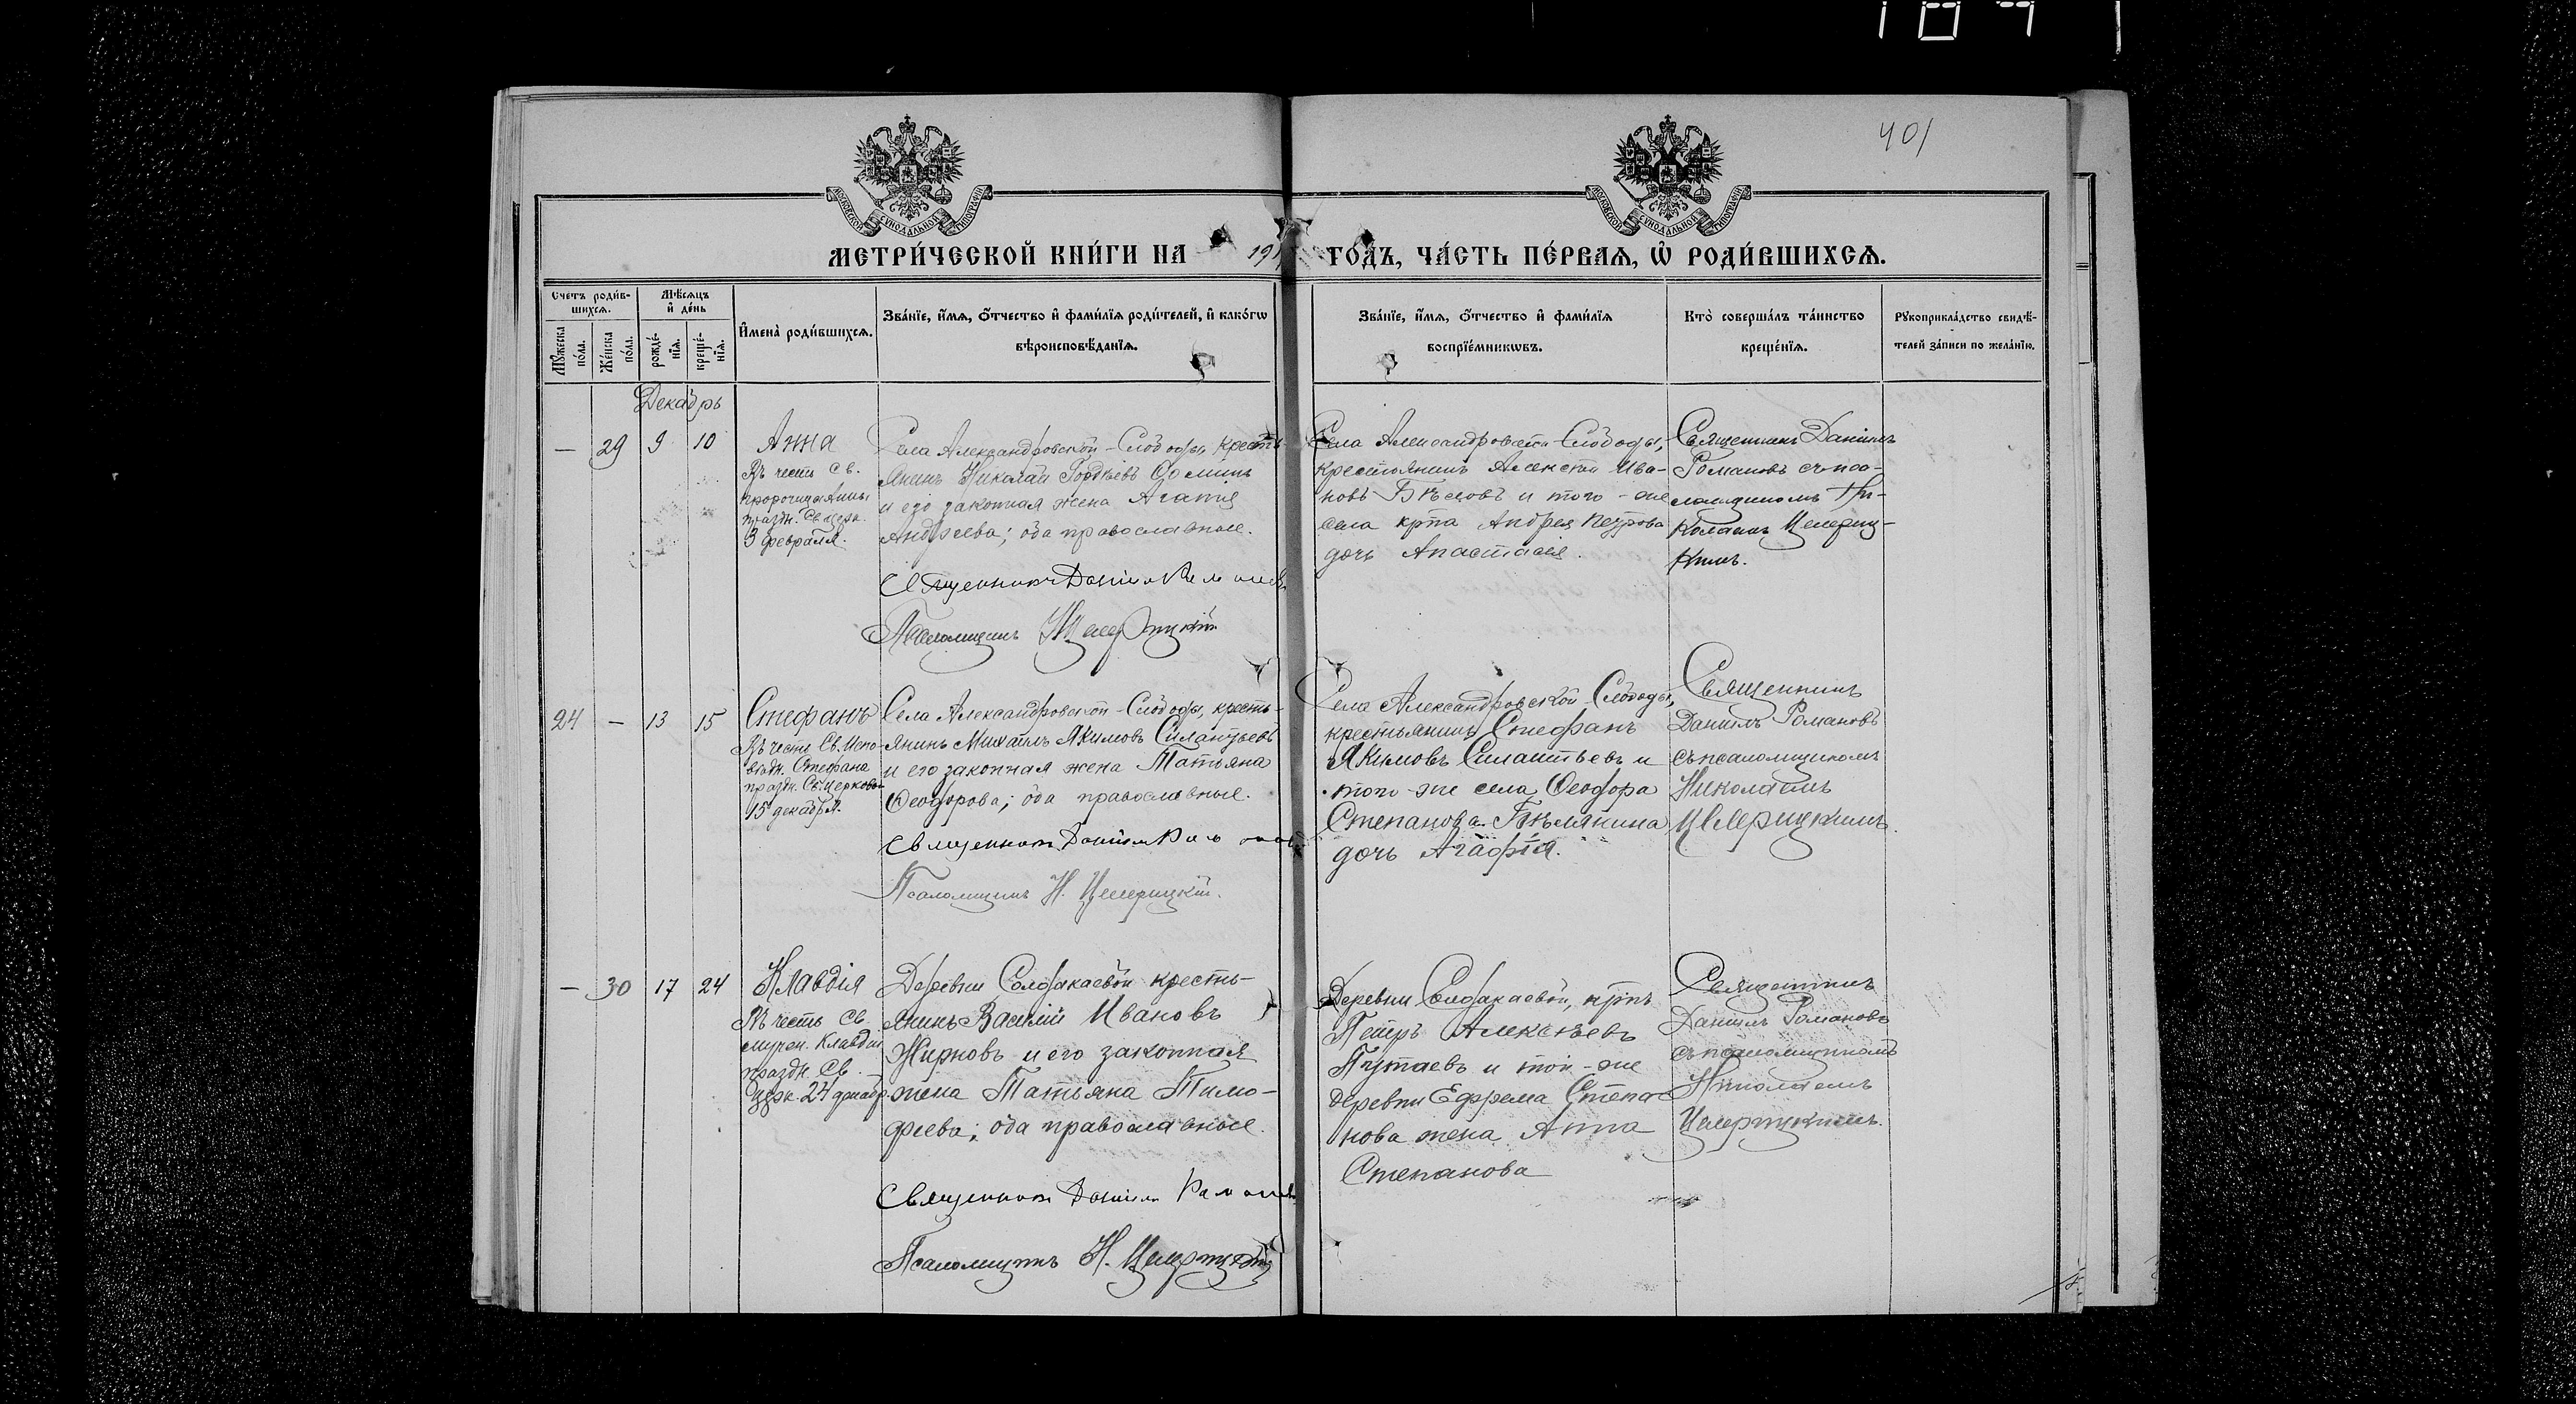 401
МОСКОВСКОЙ СѴНОДАЛЬНОЙ ТИПОГРАФІИ
МОСКОВСКОЙ СѴНОДАЛЬНОЙ ТИПОГРАФІИ
МЕТРИ́ЧЕСКОЙ КНИ́ГИ НА 191 ГО́ДЪ, ЧА́СТЬ ПЕ́РВАѦ, Ѡ҆ РОДИ́ВШИХСѦ.
Счетъ роди́в-
шихсѧ.
Мꙋ́жеска
по́ла.
Же́нска
по́ла.
Мѣ́сѧцъ
и҆ де́нь
рожде́-
нїѧ.
креще́-
нїѧ.
И҆мена̀ роди́вшихсѧ.
Зва́нїе, и҆́мѧ, ѻ҆́тчество и҆ фами́лїѧ роди́телей, и҆ како́гѡ
вѣроисповѣ́данїѧ.
Зва́нїе, и҆́мѧ, ѻ҆́тчество и҆ фами́лїѧ
воспрїе́мникѡвъ.
Кто̀ соверша́лъ та́инство
креще́нїѧ.
Рꙋкоприкла́дство свидѣ́-
телей за́писи по жела́нїю.
Декабрь
— 29 9 10
Анна
Въ честь Св.
пророчицы Анны
праздн. Св. церк.
3 февраля.
Села Александровской-Слободы, кресть-
янинъ Николай Гордѣевъ Фоминъ
и его законная жена Агапія
Андреева; оба православные.
Священникъ Даніилъ Романовъ
Псаломщикъ Н. Цемерицкій
Села Александровской-Слободы,
крестьянинъ Алексѣй Ива-
новъ Бѣловъ и того-же
села крпа Андрея Петрова
дочь Анастасія.
Священникъ Даніилъ
Романовъ съ пса-
ломщикомъ Ни-
колаемъ Цемериц-
кимъ.
24 — 13 15
Стефанъ
Въ честь Св. Испо-
вѣдн. Стефана
праздн. Св. церковію
15 декабря.
Села Александровской-Слободы, кресть-
янинъ Михаилъ Якимовъ Силантьевъ
и его законная жена Татьяна
Ѳеодорова; оба православные.
Священникъ Даніилъ Романовъ
Псаломщикъ Н. Цемерицкій.
Села Александровской-Слободы,
крестьянинъ Стефанъ
Якимовъ Силантьевъ и
того-же села Ѳеодора
Степанова Бѣлянина
дочь Агафія.
Священникъ
Даніилъ Романовъ
съ псаломщикомъ
Николаемъ
Цемерицкимъ.
— 30 17 24
Клавдія
Въ честь Св.
мучен. Клавдіи
праздн. Св.
церк. 24 декабр.
Деревни Солдакаевой кресть-
янинъ Василій Ивановъ
Жирновъ и его законная
жена Татьяна Тимо-
феева; оба православные.
Священникъ Даніилъ Романовъ
Псаломщикъ Н. Цемерицкій
Деревни Солдакаевой, крпъ
Петръ Алексѣевъ
Путаевъ и той-же
деревни Ефрема Степа-
нова жена Анна
Степанова
Священникъ
Даніилъ Романовъ
съ псаломщикомъ
Николаемъ
Цемерицкимъ.